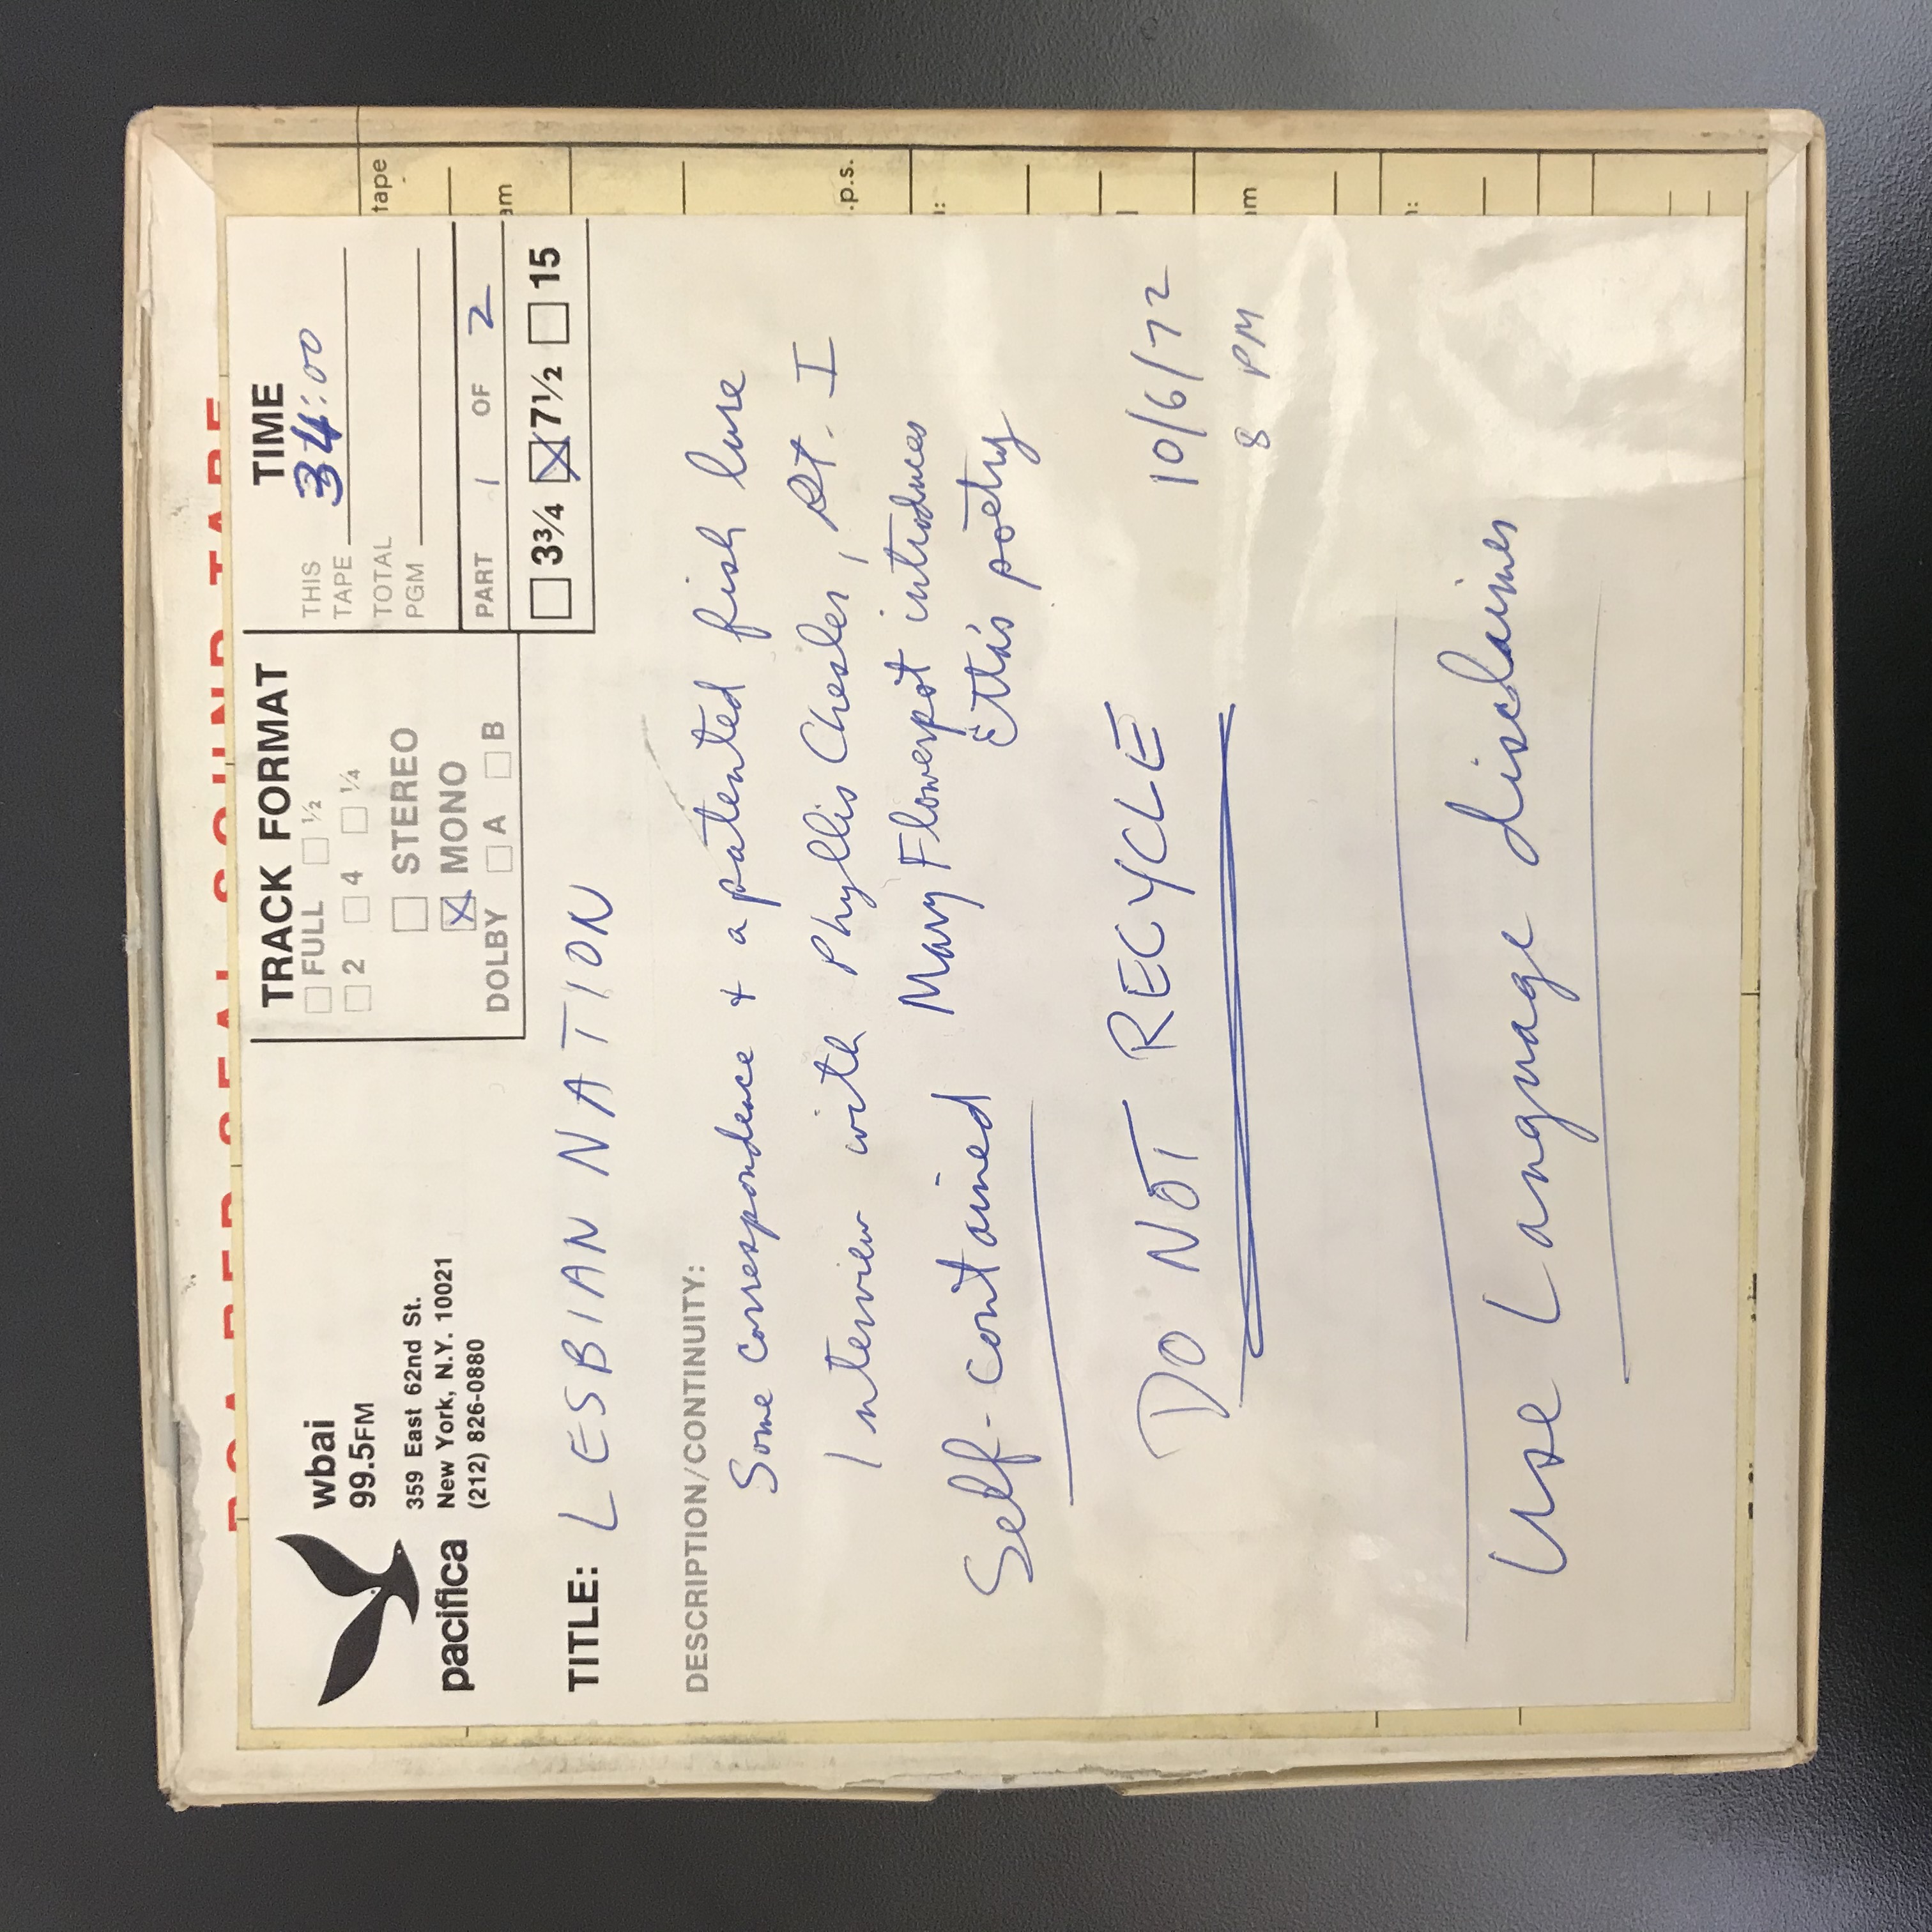 wbai
99.5FM
359 East 62nd St.
New York, N.Y. 10021
pacifica (212) 826-0880
TRACK FORMAT
☐ FULL ☐ 1/2
☐ 2 ☐ 4 ☐ 1/4
☐ STEREO
☒ MONO
DOLBY ☐ A ☐ B
TIME
THIS TAPE 34:00
TOTAL PGM
PART 1 OF 2
☐ 3¾ ☒ 7½ ☐ 15
TITLE: LESBIAN NATION
DESCRIPTION/CONTINUITY:
Some correspondence + a patented fish lure
Interview with Phyllis Chesler, Pt. I
Self-contained Mary Flowerpot introduces
Etta's poetry
DO NOT RECYCLE 10/6/72
8 PM
Use Language disclaimer
tape
am
.p.s.
am